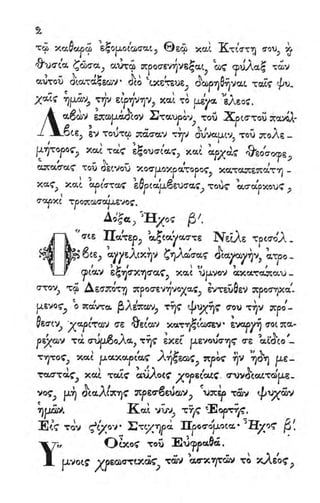 2
τῷ καθαρῷ ἐξομοίωσαι, Θεῷ καὶ Κτίστῃ σου, ὡς
θυσία ζῶσα, αὐτῷ προσενήνεξαι, ὡς φύλαξ τῶν
αὐτοῦ διατάξεων· διὸ ἱκέτευε, δωρηθῆναι ταῖς ψυ-
χαῖς ἡμῶν, τὴν εἰρήνην, καὶ τὸ μέγα ἔλεος.
Λαβὼν ἐπωμάδιον Σταυρὸν, τοῦ Χριστοῦ πανόλ-
βιε, ἐν τούτῳ πᾶσαν τὴν δύναμιν, τοῦ πολε-
μήτορος, καὶ τὰς ἐξουσίας, καὶ ἀρχὰς θεόσοφε,
ἁπάσας τοῦ δεινοῦ κοσμοκράτορος, καταπεπάτη-
κας, καὶ ἀρίστας ἐθριάμβευσας, τοὺς ἀσάρκους,
σαρκὶ τροπωσάμενος.
Δόξα, Ἦχος β΄.
Ὅσιε Πάτερ, ἀξιάγαστε Νεῖλε τρισόλ-
βιε, ἀγγελικὴν ζηλώσας διαγωγὴν, ἀτρο-
φίαν ἐξήσκησας, καὶ ὕμνον ἀκατάπαυ-
στον, τῷ Δεσπότῃ προσενήνοχας, ἐντεῦθεν προσηκά-
μενος, ὁ πάντα βλέπων, τῆς ψυχῆς σου τὴν πρό-
θεσιν, χαρίτων σε θείων κατηξίωσεν· ἐναργῆ σοι πα-
ρέχων τὰ σύμβολα, τῆς ἐκεῖ μενούσης σε ἀϊδιό-
τητος, καὶ μακαρίας λήξεως, πρὸς ἣν ἤδη με-
ταστὰς, καὶ ταῖς ἀΰλοις χορείαις συνδιαιτώμε-
νος, μὴ διαλίπῃς πρεσβεύων, ὑπὲρ τῶν ψυχῶν
ἡμῶν. Καὶ νῦν, τῆς Ἑορτῆς.
Εἰς τὸν στίχον· Στιχηρὰ Προσόμοια· Ἦχος β΄.
Οἶκος τοῦ Εὐφραθᾶ.
Ὕμνοις χρεωστικῶς, τῶν ἀσκητῶν τὸ κλέος,